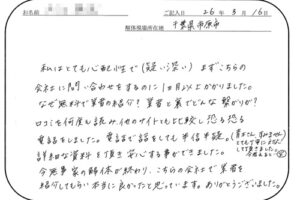 お名前 ご記入日 26年3月16日
解体現場所在地 千葉県市原市
私はとても心配性で(疑い深い)まずこちらの
会社に問い合わせをするのに1ヶ月以上かかりました。
なぜ無料で業者の紹介?業者と裏でどんな繋がりが?
口コミを何度も読み、他のサイトとも比較し、恐る恐る
電話をしました。電話で話をしても半信半疑。
(業者さん、すみません)
とても丁寧に
して頂きました。
今思えば
詳細な資料を頂き安心する事ができました。
今無事家の解体が終わり、こちらの会社で業者を
紹介してもらい本当に良かったと思っています。ありがとうございました。